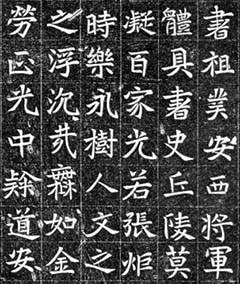 書祖安西將軍
體具書史丘陵莫
凝百家光若張炬
時樂永樹人文之
之浮沉如金
勞光中道安